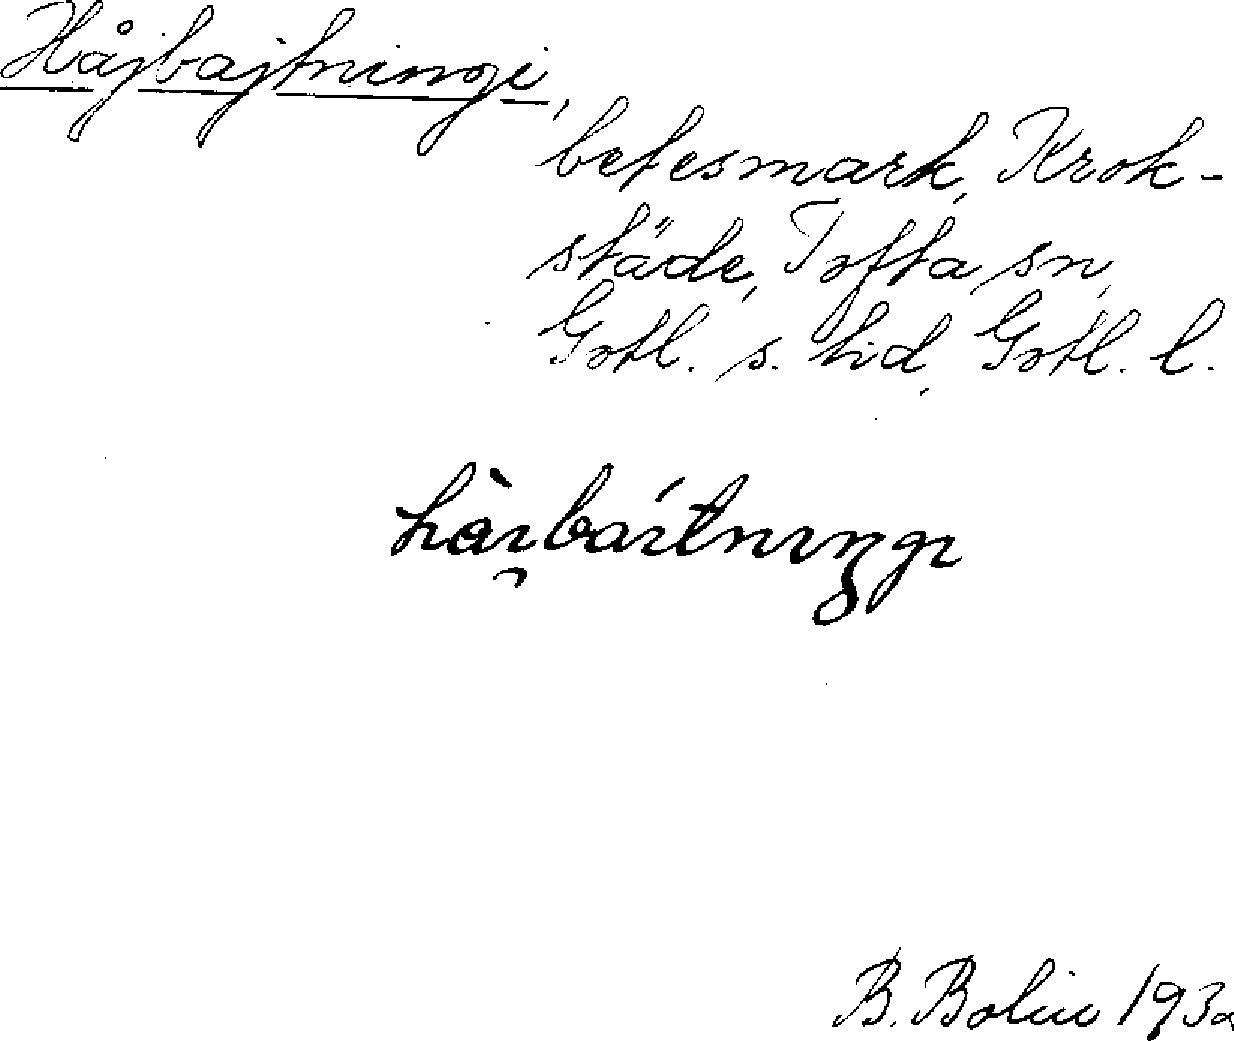 Håjbajtningi,
betesmark, Krok-
städe, Tofta sn,
Gotl. s. hd, Gotl. l.
B. Bolin 193